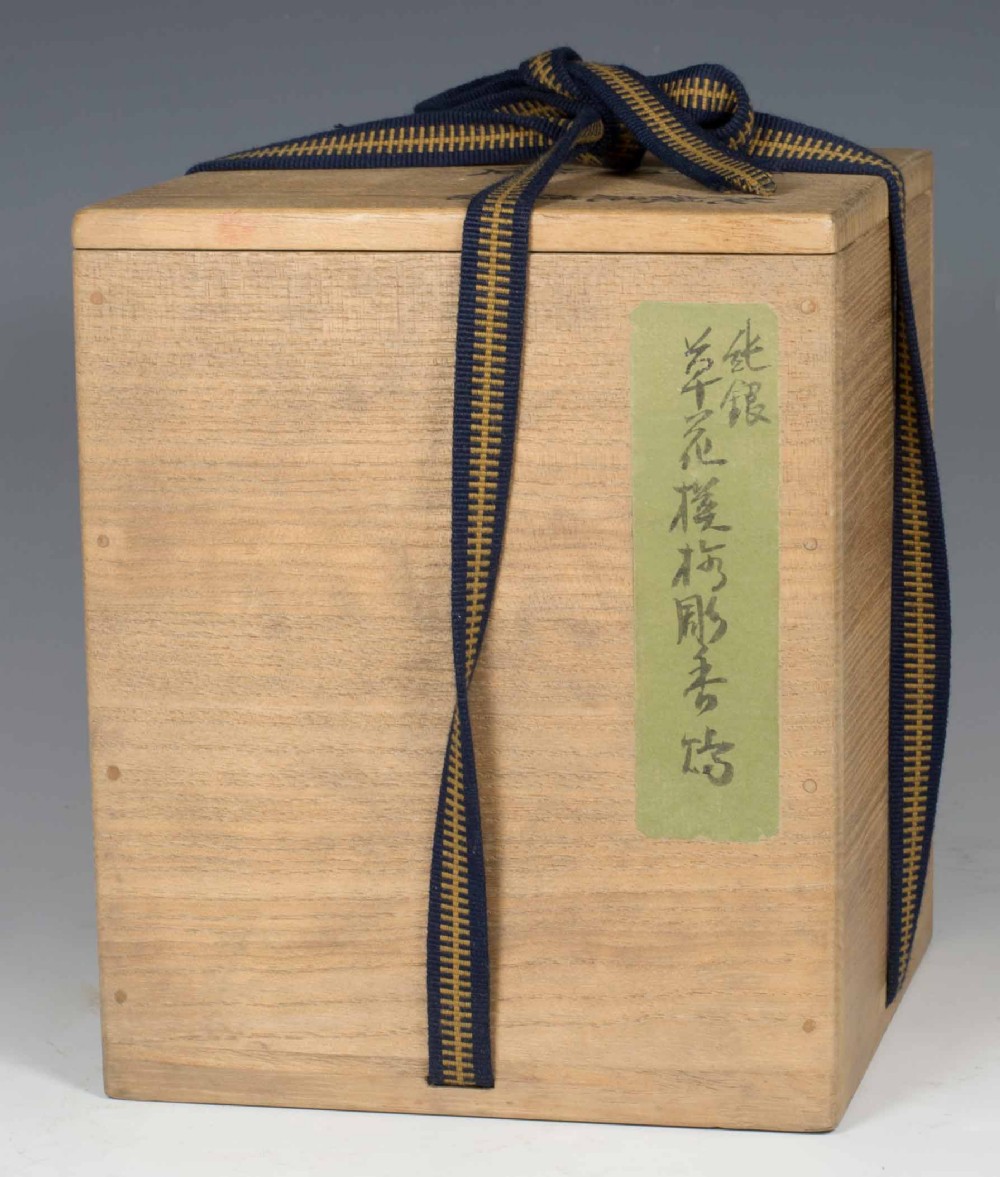 純銀
草花模様彫香炉